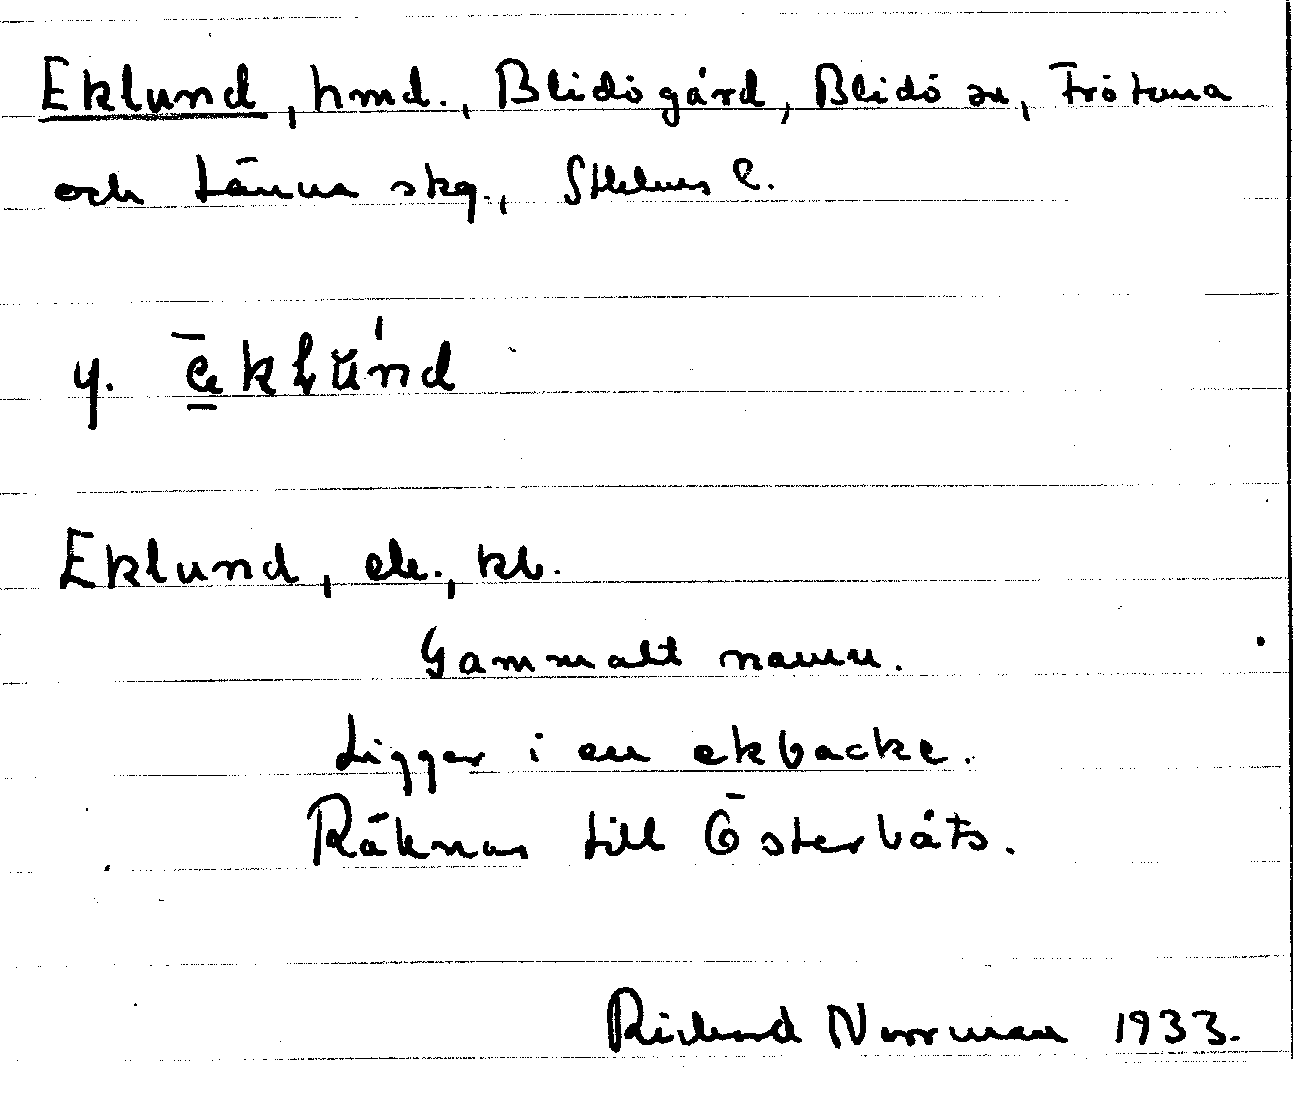 Eklund, hmd., Blidögård, Blidö sn, Frötuna
och Länna skg., Sthlms l.
y. ēklŭ́nd
Eklund, ek., kb.
Gammalt namn.
Ligger i en ekbacke.
Räknas till Österbåts.
Richard Norrman 1933.